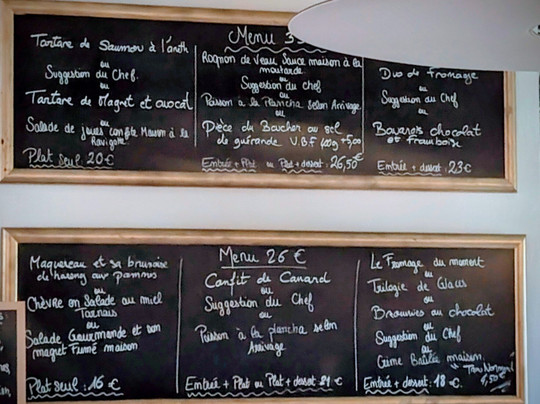 Menu 3
Tartare de Saumon à l'aneth
ou
Suggestion du Chef.
ou
Tartare de Magret et avocat
ou
Salade de joues confite Maison à la
Ravigote
Plat seul 20 €
Rognon de Veau Sauce maison à la
moutarde
ou
Suggestion du chef
ou
Poisson à la plancha selon Arrivage
ou
Pièce du Boucher au sel
de guérande V.B.F 400g +5,00
Entrée + Plat ou Plat + dessert : 26,50€
Duo de fromage
ou
Suggestion du Chef
ou
Bavarois chocolat
et framboise
Entrée + dessert : 23 €
Menu 26 €
Maquereau et sa
de hareng aux pommes
ou
Chèvre en Salade au miel
ou
Salade Gourmande et son
magret Fumé maison
Plat seul : 16 €
Confit de Canard
ou
Suggestion du Chef
ou
Poisson à la plancha selon
Arrivage
Entrée + Plat ou Plat + dessert 21 €
Le Fromage du moment
ou
Trilogie de Glaces
ou
Brownies au chocolat
ou
Suggestion du Chef
ou
Crème Brûlée maison
Entrée + dessert : 18 €.